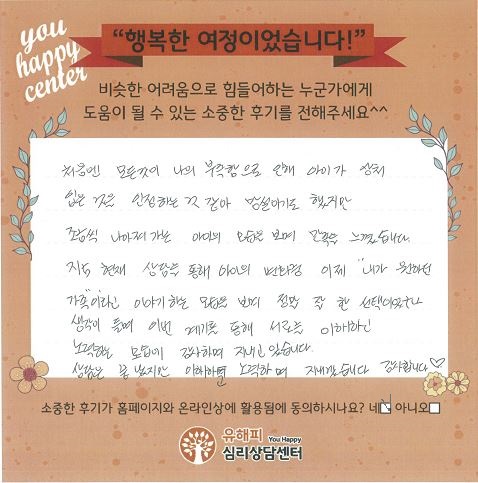 you
happy
center
“행복한 여정이었습니다!”
비슷한 어려움으로 힘들어하는 누군가에게
도움이 될 수 있는 소중한 후기를 전해주세요^^
처음엔 모든것이 나의 부족함으로 인해 아이가 상처
입은 것은 인정하는 것 같아 망설이기도 했지만
조금씩 나아져가는 아이의 모습을 보며 만족을 느꼈습니다.
지금 현재 상담을 통해 아이의 변화된 이제 "내가 원하던
가족"이라고 이야기하는 모습을 보며 정말 잘 한 선택이었구나
생각이 들며 이번 계기를 통해 서로를 이해하고
노력하는 모습에 감사하며 지내고 있습니다.
상담은 끝났지만 이해하며 노력하며 지내겠습니다 감사합니다♡
소중한 후기가 홈페이지와 온라인상에 활용됨에 동의하시나요? 네☑ 아니오□
유해피 You Happy
심리상담센터